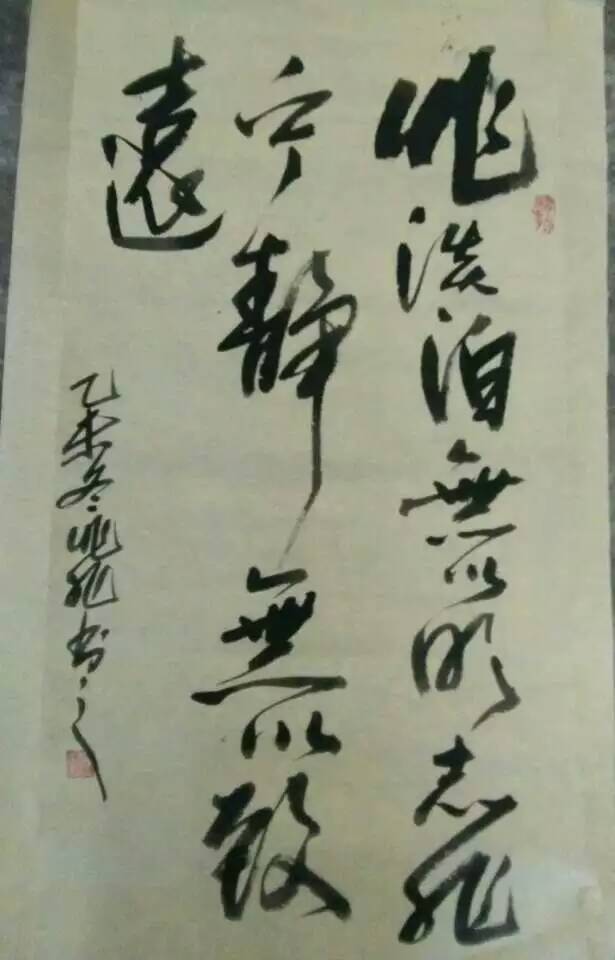 非淡泊無以明志非
宁靜無以致
遠
乙未冬非書之